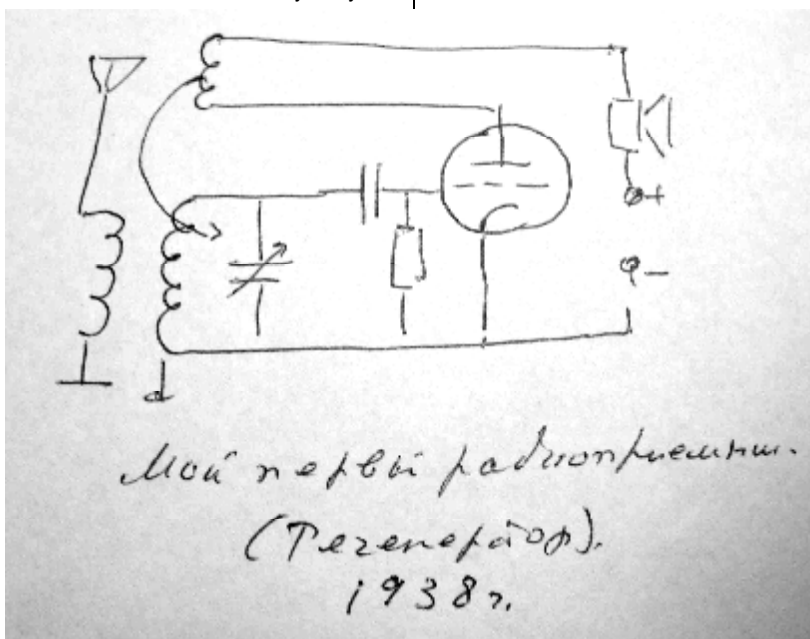 +
-
Мой первый радиоприемник.
(Регенератор).
1938г.